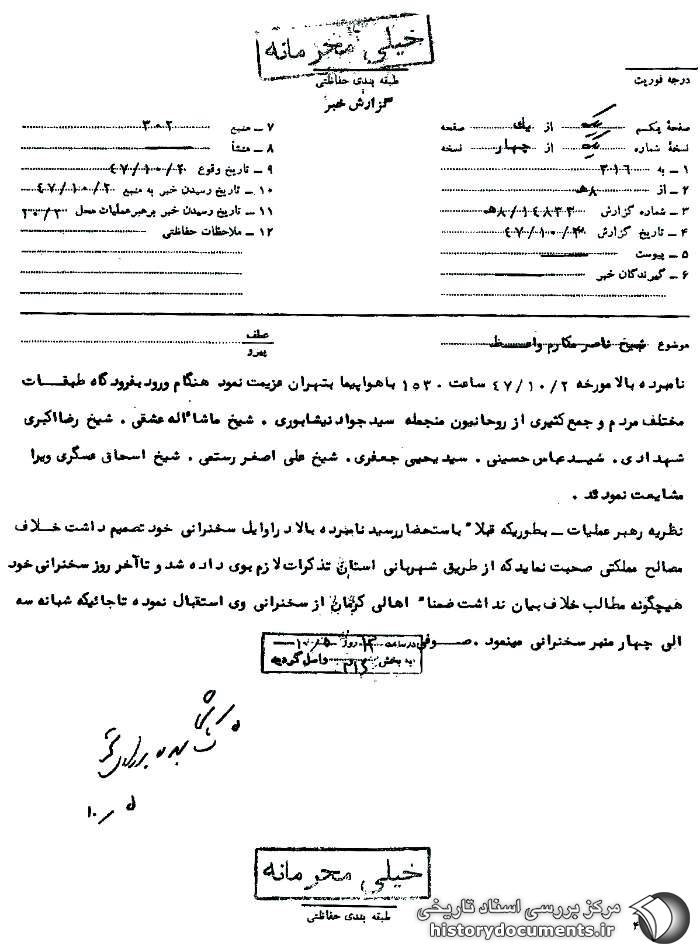 خیلی محرمانه
طبقه بندی حفاظتی
گزارش خبر
درجه فوریت
صفحهٔ یکم یک از یک صفحه
نسخهٔ شماره یک از چهار نسخه
۱ ـ به ۳۱۶
۲ ـ از ۸ هـ
۳ ـ شماره گزارش ۸/۱۴۸۳۳ هـ
۴ ـ تاریخ گزارش ۴۷/۱۰/۳
۵ ـ پیوست
۶ ـ گیرندگان خبر
۷ ـ منبع ۳۰۲
۸ ـ منشأ
۹ ـ تاریخ وقوع ۴۷/۱۰/۲
۱۰ ـ تاریخ رسیدن خبر به منبع ۴۷/۱۰/۲
۱۱ ـ تاریخ رسیدن خبر برهبر عملیات محل
۱۲ ـ ملاحظات حفاظتی
موضوع شیخ ناصر مکارم واعظ
عطف
پیرو
نامبرده بالا مورخه ۴۷/۱۰/۲ ساعت ۱۵۳۰ با هواپیما بتهران عزیمت نمود هنگام ورود بفرودگاه طبقات
مختلف مردم و جمع کثیری از روحانیون منجمله سید جواد نیشابوری ۰ شیخ ماشااله عشقی ۰ شیخ رضا اکبری
شهدادی ۰ سید عباس حسینی ۰ سید یحیی جعفری ۰ شیخ علی اصغر رستمی ۰ شیخ اسحاق عسگری ویرا
مشایعت نمودند ۰
نظریه رهبر عملیات ـ بطوریکه قبلاً باستحضار رسید نامبرده بالا در اوایل سخنرانی خود تصمیم داشت خلاف
مصالح مملکتی صحبت نماید که از طریق شهربانی استان تذکرات لازم بوی داده شد و تا آخر روز سخنرانی خود
هیچگونه مطالب خلاف بیان نداشت ضمناً اهالی کرمان از سخنرانی وی استقبال نموده تا جائیکه شبانه سه
الی چهار منبر سخنرانی مینمود ۰ صوفی
در ساعت ۱۳ روز ۱۰/۵
به بخش ۳۱۶ واصل گردید
خیلی محرمانه
طبقه بندی حفاظتی
مرکز بررسی اسناد تاریخی
historydocuments.ir